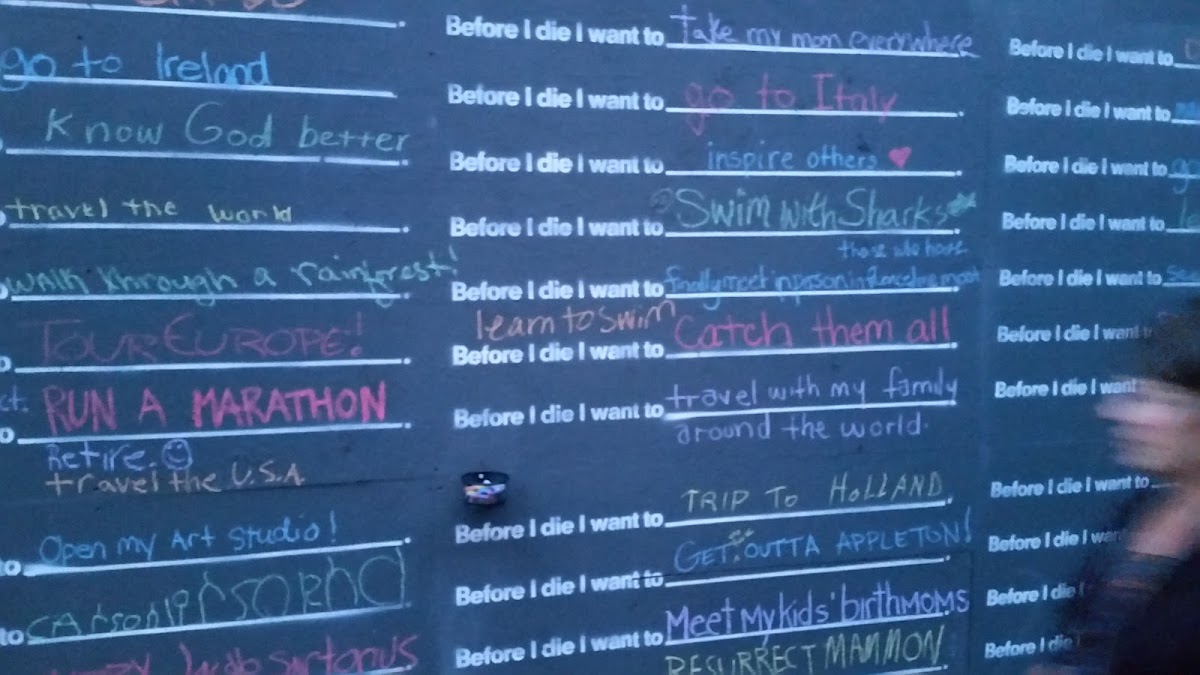 go to Ireland
Know God better
travel the world
walk through a rainforest!
Tour EUROPE!
ct.
RUN A MARATHON
Retire.
travel the U.S.A.
Open my Art Studio!
to
to
Before I die I want to take my mom everywhere
Before I die I want to go to Italy
Before I die I want to inspire others
Before I die I want to Swim with Sharks
those who have
Before I die I want to finally meet in person influenced me most
learn to swim
Before I die I want to Catch them all
Before I die I want to travel with my family
around the world.
Before I die I want to TRIP TO HOLLAND
Before I die I want to GET OUTTA APPLETON!
Before I die I want to Meet My kids' birthmoms
Before I die I want to RESURRECT MAMMON
Before I die I want to
Before I die I want to
Before I die I want to
Before I die I want to
Before I die I want to
Before I die I want
Before I die I want
Before I die I want to
Before I die I
Before I die I
Before I die